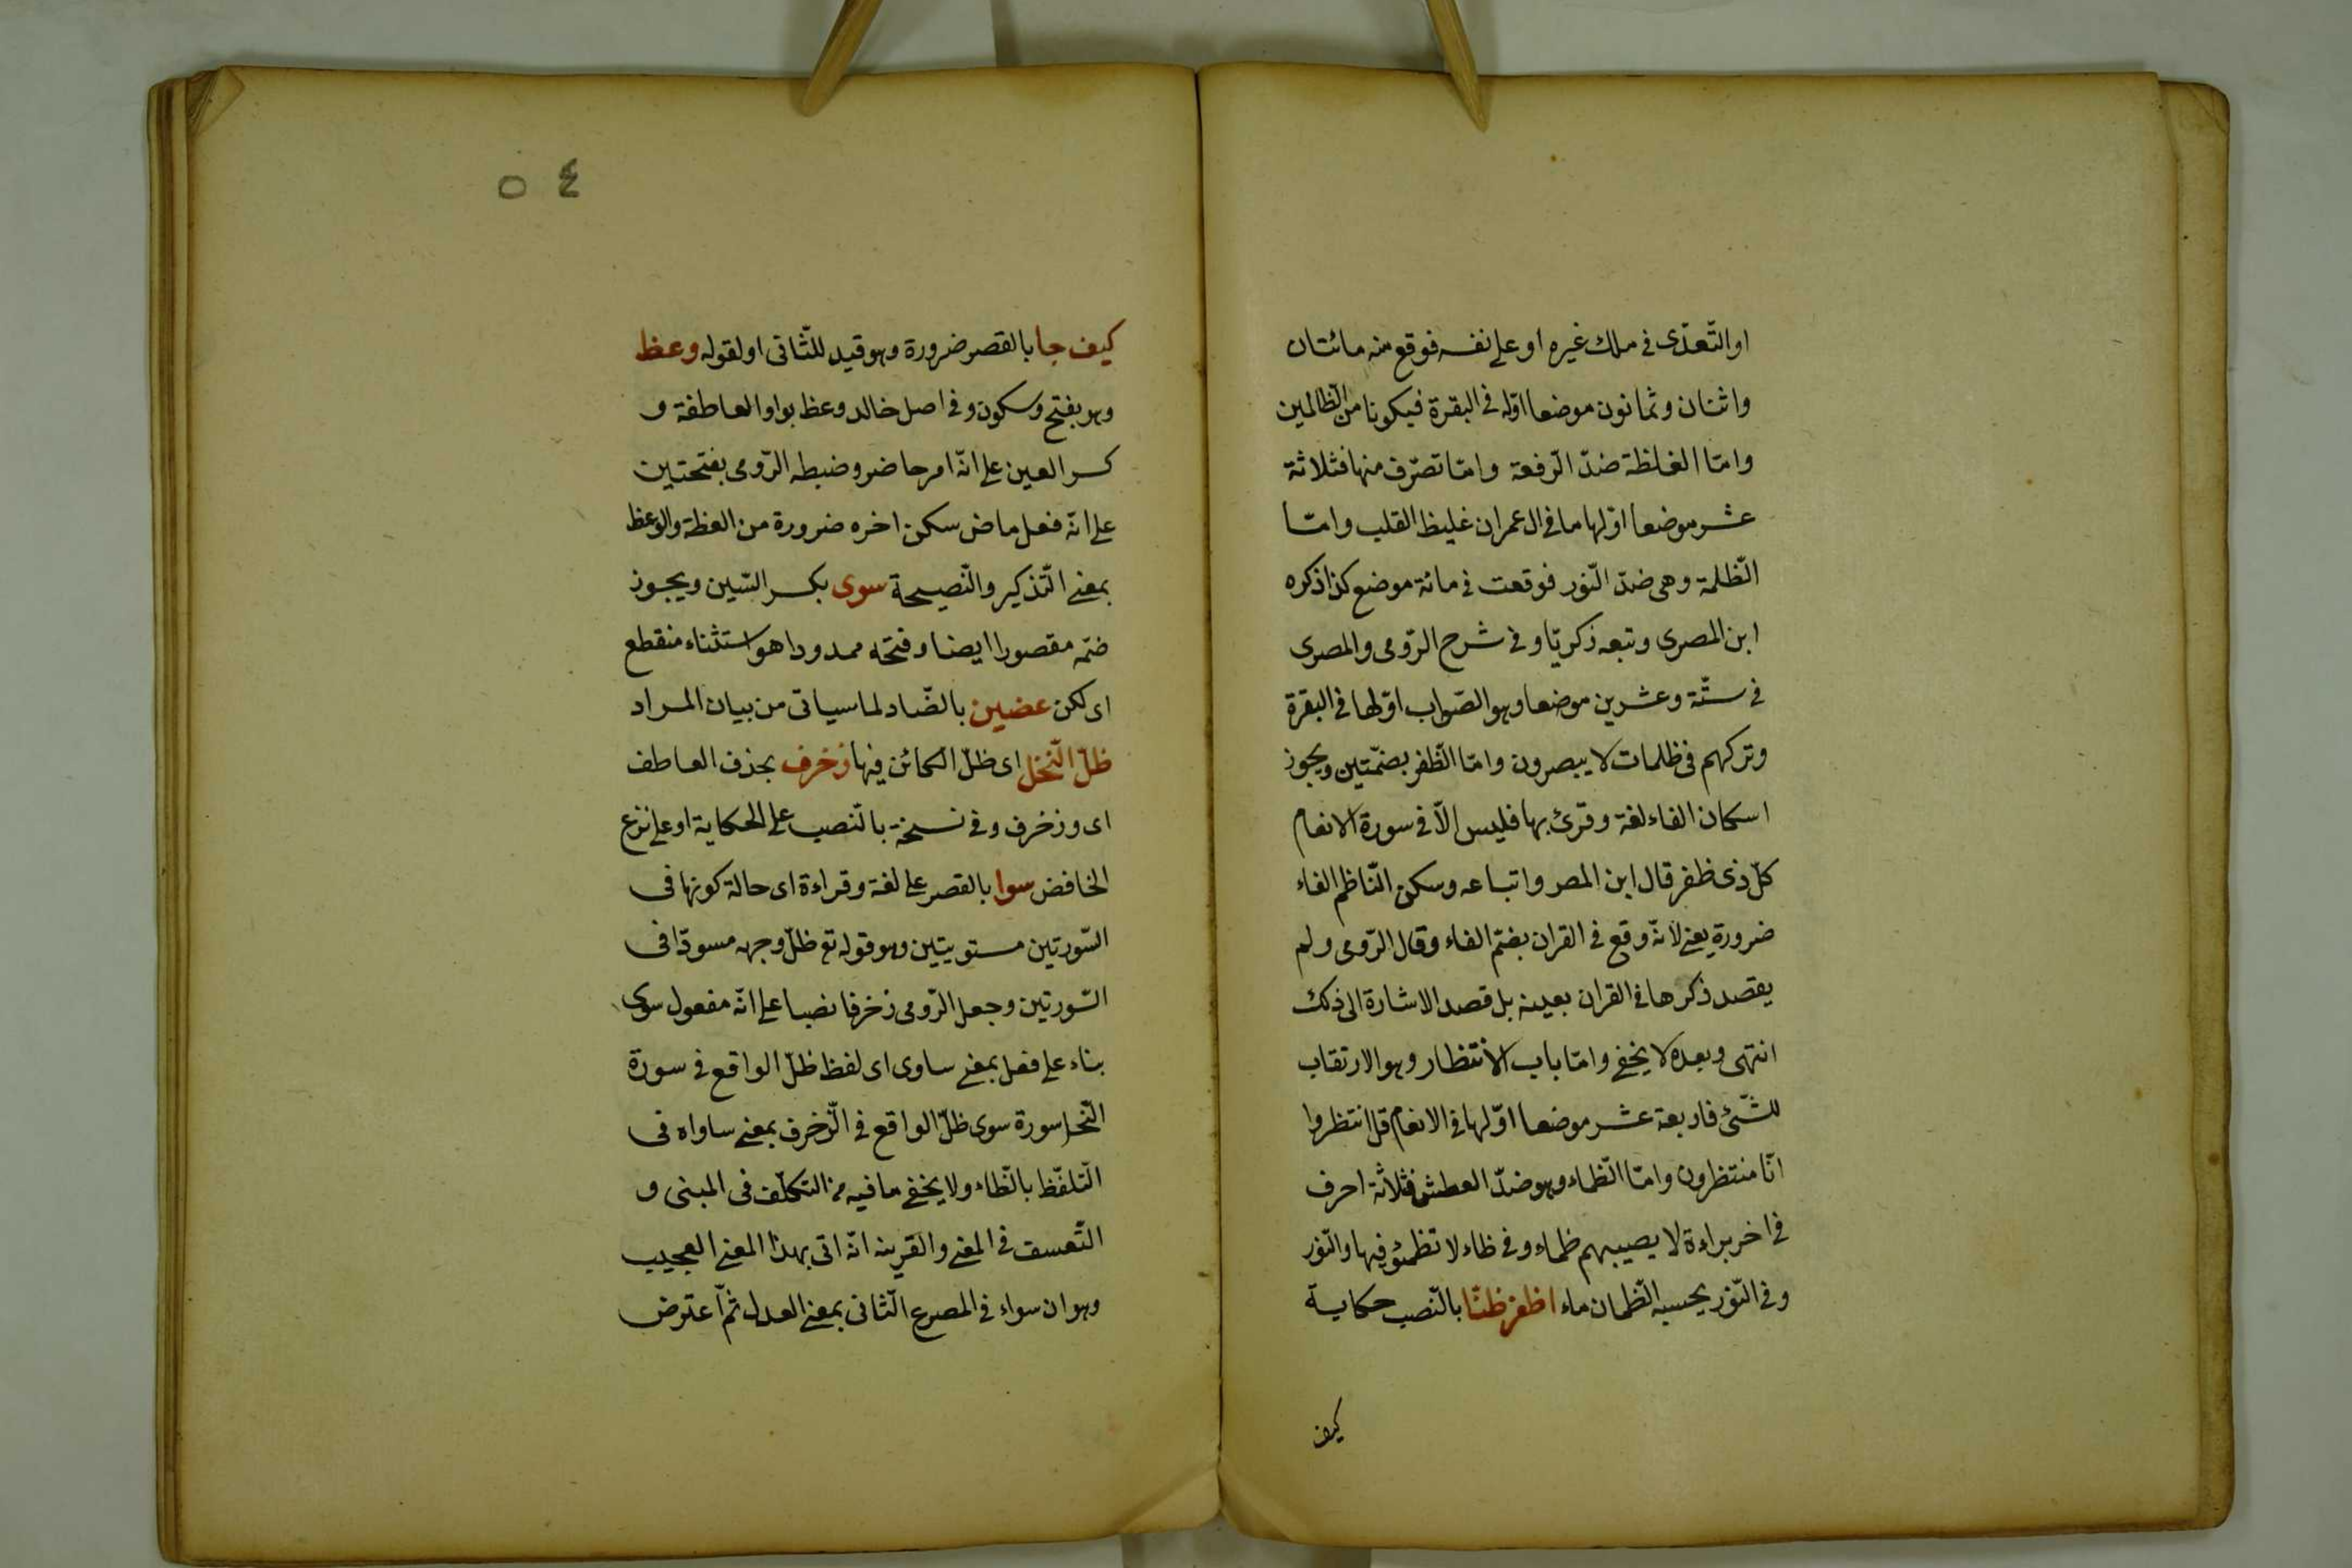 او التّعدّى فى ملك غيره او على نفسه فوقع منه مائتان
واثنان وثمانون موضعا اوّله فى البقرة فيكونا من الظّالمين
وامّا الغلظة ضدّ الرّفعة وامّا تصرّف منها فثلاثة
عشر موضعا اوّلها ما فى ال عمران غليظ القلب وامّا
الظّلمة وهى ضدّ النّور فوقعت فى مائة موضع كذا ذكره
ابن المصرى وتبعه زكريّا وفى شرح الرّومى والمصرى
فى ستّة وعشرين موضعا وهو الصّواب اوّلها فى البقرة
وتركهم فى ظلمات لا يبصرون وامّا الظّفر بضمّتين ويجوز
اسكان الفاء لغة وقرئ بها فليس الّا فى سورة الانعام
كلّ ذى ظفر قال ابن المصر واتباعه وسكن النّاظم الفاء
ضرورة يعنى لانّه وقع فى القران بضمّ الفاء وقال الرّومى ولم
يقصد ذكرها فى القران بعينه بل قصد الاشارة الى ذلك
انتهى وبعده لا يخفى وامّا باب الانتظار وهو الارتقاب
للشّئ فاربعة عشر موضعا اوّلها فى الانعام قل انتظروا
انّا منتظرون وامّا الظّماء وهو ضدّ العطش فثلاثة احرف
فى اخر براءة لا يصيبهم ظماء وفى طاء لا تظمئو فيها والنّور
وفى النّور يحسبه الظّمان ماء اظفر ظنّا بالنّصب حكاية
كيف
٥٤
كيف جا بالقصر ضرورة وهو قيد للثّانى او لقوله وعظ
وهو بفتح وسكون وفى اصل خالد وعظ بواو العاطفة و
كسر العين على انّه امر حاضر وضبطه الرّومى بفتحتين
على انّه فعل ماض سكن اخره ضرورة من العظة والوعظ
بمعنى التّذكير والنّصيحة سوى بكسر السّين ويجوز
ضمّه مقصورا ايضا وفتحه ممدودا هو استثناء منقطع
اى لكن عضين بالضّاد لما سياتى من بيان المراد
ظلّ النّحل اى ظلّ الكائن فيها زخرف بحذف العاطف
اى وزخرف وفى نسخة بالنّصب على الحكاية او على نزع
الخافض سوا بالقصر على لغة وقراءة اى حالة كونها فى
السّورتين مستويتين وهو قوله تع ظلّ وجهه مسودّا فى
السّورتين وجعل الرّومى زخرفا نصبا على انّه مفعول سوى
بناء على فعل بمعنى ساوى اى لفظ ظلّ الواقع فى سورة
النّحل سورة سوى ظلّ الواقع فى الزّخرف بمعنى ساواه فى
التّلفّظ بالظّاء ولا يخفى ما فيه من التكلّف فى المبنى و
التّعسف فى المعنى والقرينه انّه اتى بهذا المعنى العجيب
وهو ان سواء فى المصرع الثّانى بمعنى العدل ثمّ اعترض